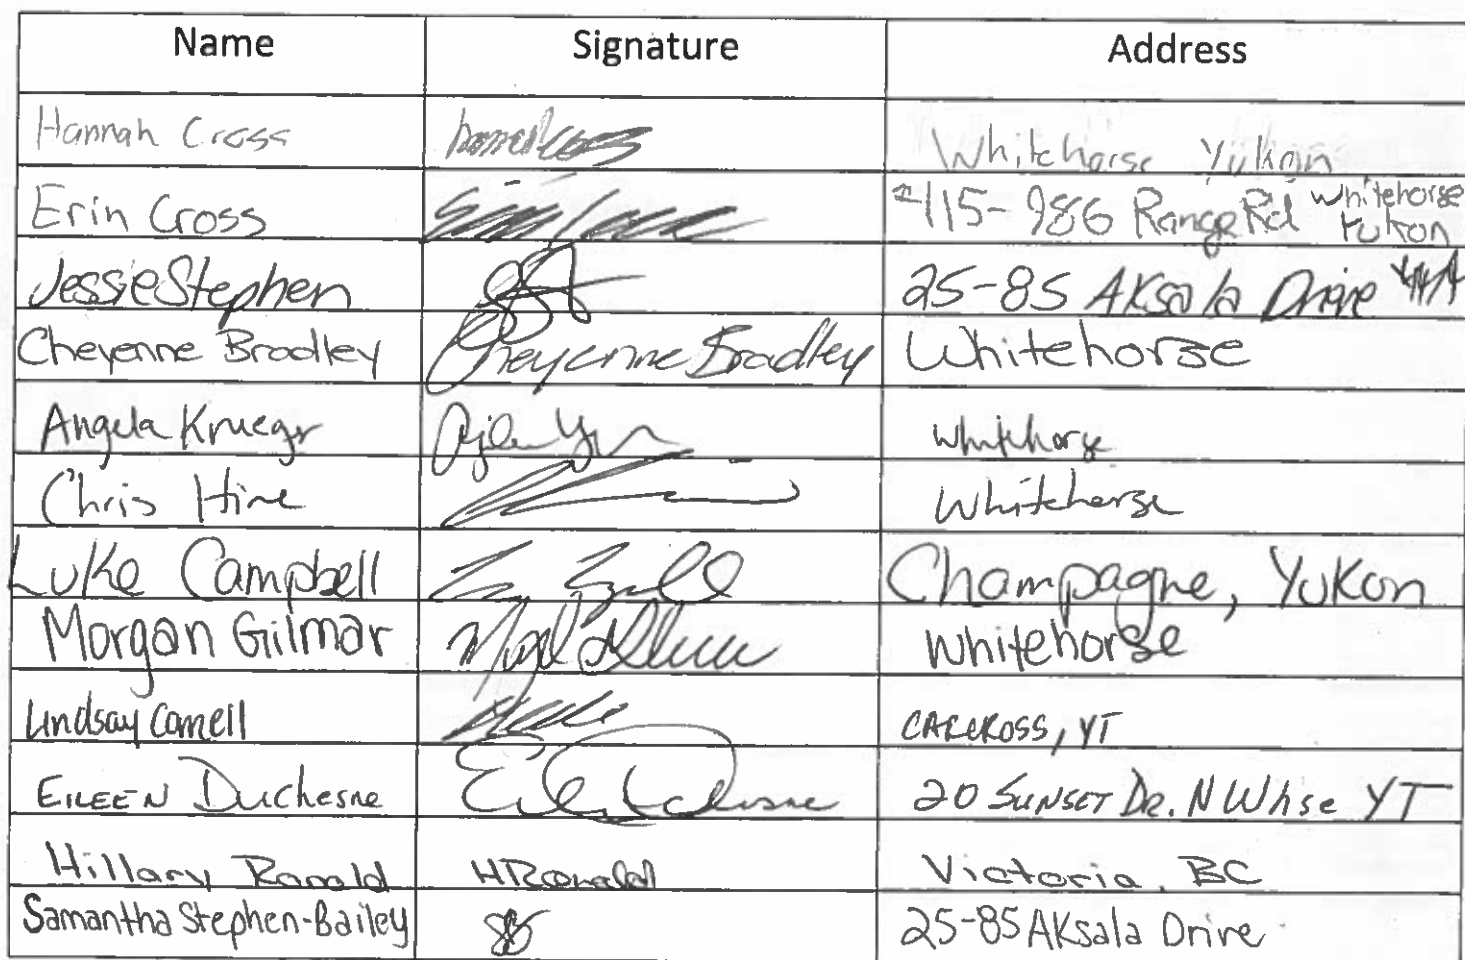 Name Signature Address
Hannah Cross Whitehorse Yukon
Erin Cross #115-986 Range Rd Whitehorse Yukon
Jessie Stephen 25-85 Aksala Drive
Cheyenne Bradley Cheyenne Bradley Whitehorse
Angela Kruegr Whitehorse
Chris Hine Whitehorse
Luke Campbell Champagne, Yukon
Morgan Gilmar Whitehorse
Lindsay CARCROSS, YT
EILEEN Duchesne 20 SUNSET DR. N Whse YT
Hillary Ronald HRonald Victoria, BC
Samantha Stephen-Bailey 25-85 Aksala Drive